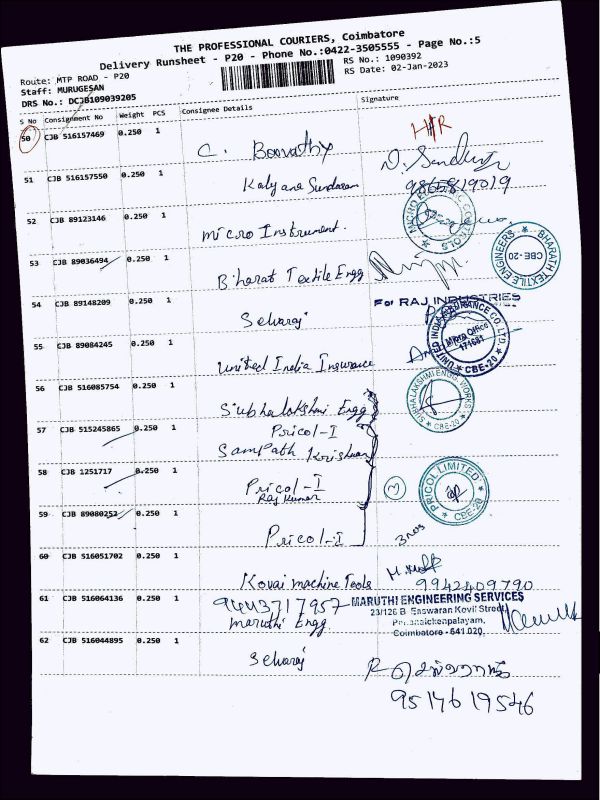 THE PROFESSIONAL COURIERS, Coimbatore
Delivery Runsheet - P20 - Phone No.:0422-3505555 - Page No.:5
Route: MTP ROAD - P20
RS No.: 1090392
Staff: MURUGESAN
RS Date: 02-Jan-2023
DRS No.: DCJB109039205
S No Consignment No Weight PCS Consignee Details Signature
50 CJB 516157469 0.250 1 C. Boovathy
51 CJB 516157550 0.250 1 Kalyana Sundaram 9865819019
52 CJB 89123146 0.250 1 Micro Instrument.
53 CJB 89036494 0.250 1 Bharat Textile Engg
BHARATH TEXTILE ENGINEERS CBE-20
54 CJB 89148209 0.250 1 Selvaraj
For RAJ INDUSTRIES
55 CJB 89084245 0.250 1 United India Insurance
UNITED INDIA INSURANCE CO.LTD. Micro Office 171681 CBE-20
56 CJB 516085754 0.250 1 Subhalakshmi Engg
SUBHALAKSHMI ENGG. WORKS CBE-20
57 CJB 515245865 0.250 1 Pricol-I
Sampath Krishnan
58 CJB 1251717 0.250 1 Pricol-I
Raj Kumar
3
PRICOL LIMITED CBE-20
59 CJB 89080252 0.250 1 Pricol-I
3 nos
60 CJB 516051702 0.250 1 Kovai Machine Tools 9942409790
61 CJB 516064136 0.250 1 9443717957
Maruthi Engg
MARUTHI ENGINEERING SERVICES
23/126 B Easwaran Kovil Street,
Perianaickenpalayam,
Coimbatore - 641 020.
62 CJB 516044895 0.250 1 Selvaraj
9514619546